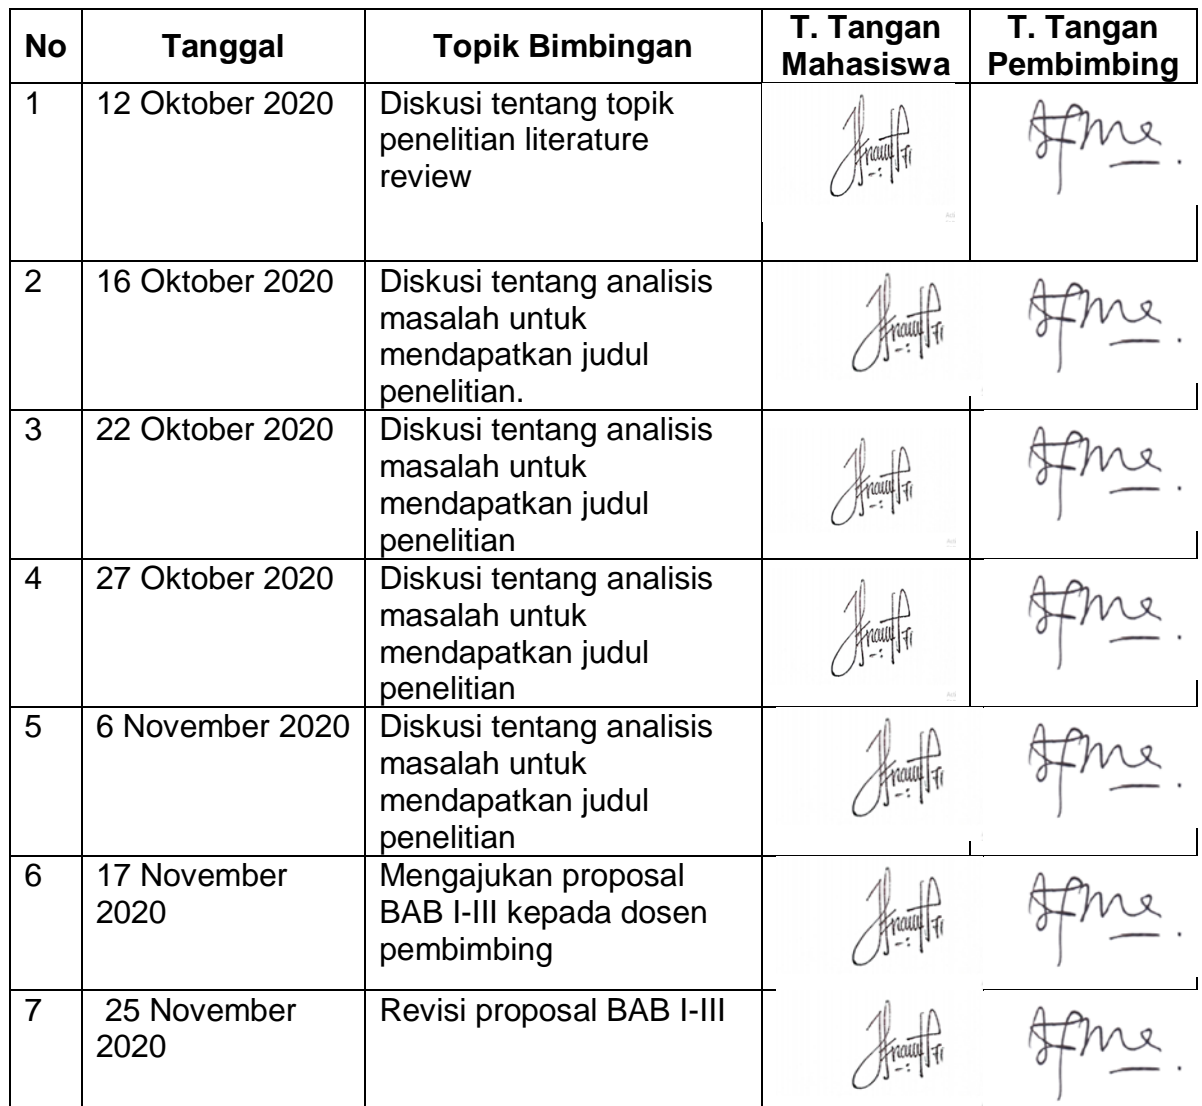 No Tanggal Topik Bimbingan T. Tangan Mahasiswa T. Tangan Pembimbing
1 12 Oktober 2020 Diskusi tentang topik
penelitian literature
review
2 16 Oktober 2020 Diskusi tentang analisis
masalah untuk
mendapatkan judul
penelitian.
3 22 Oktober 2020 Diskusi tentang analisis
masalah untuk
mendapatkan judul
penelitian
4 27 Oktober 2020 Diskusi tentang analisis
masalah untuk
mendapatkan judul
penelitian
5 6 November 2020 Diskusi tentang analisis
masalah untuk
mendapatkan judul
penelitian
6 17 November Mengajukan proposal
2020 BAB I-III kepada dosen
pembimbing
7 25 November Revisi proposal BAB I-III
2020